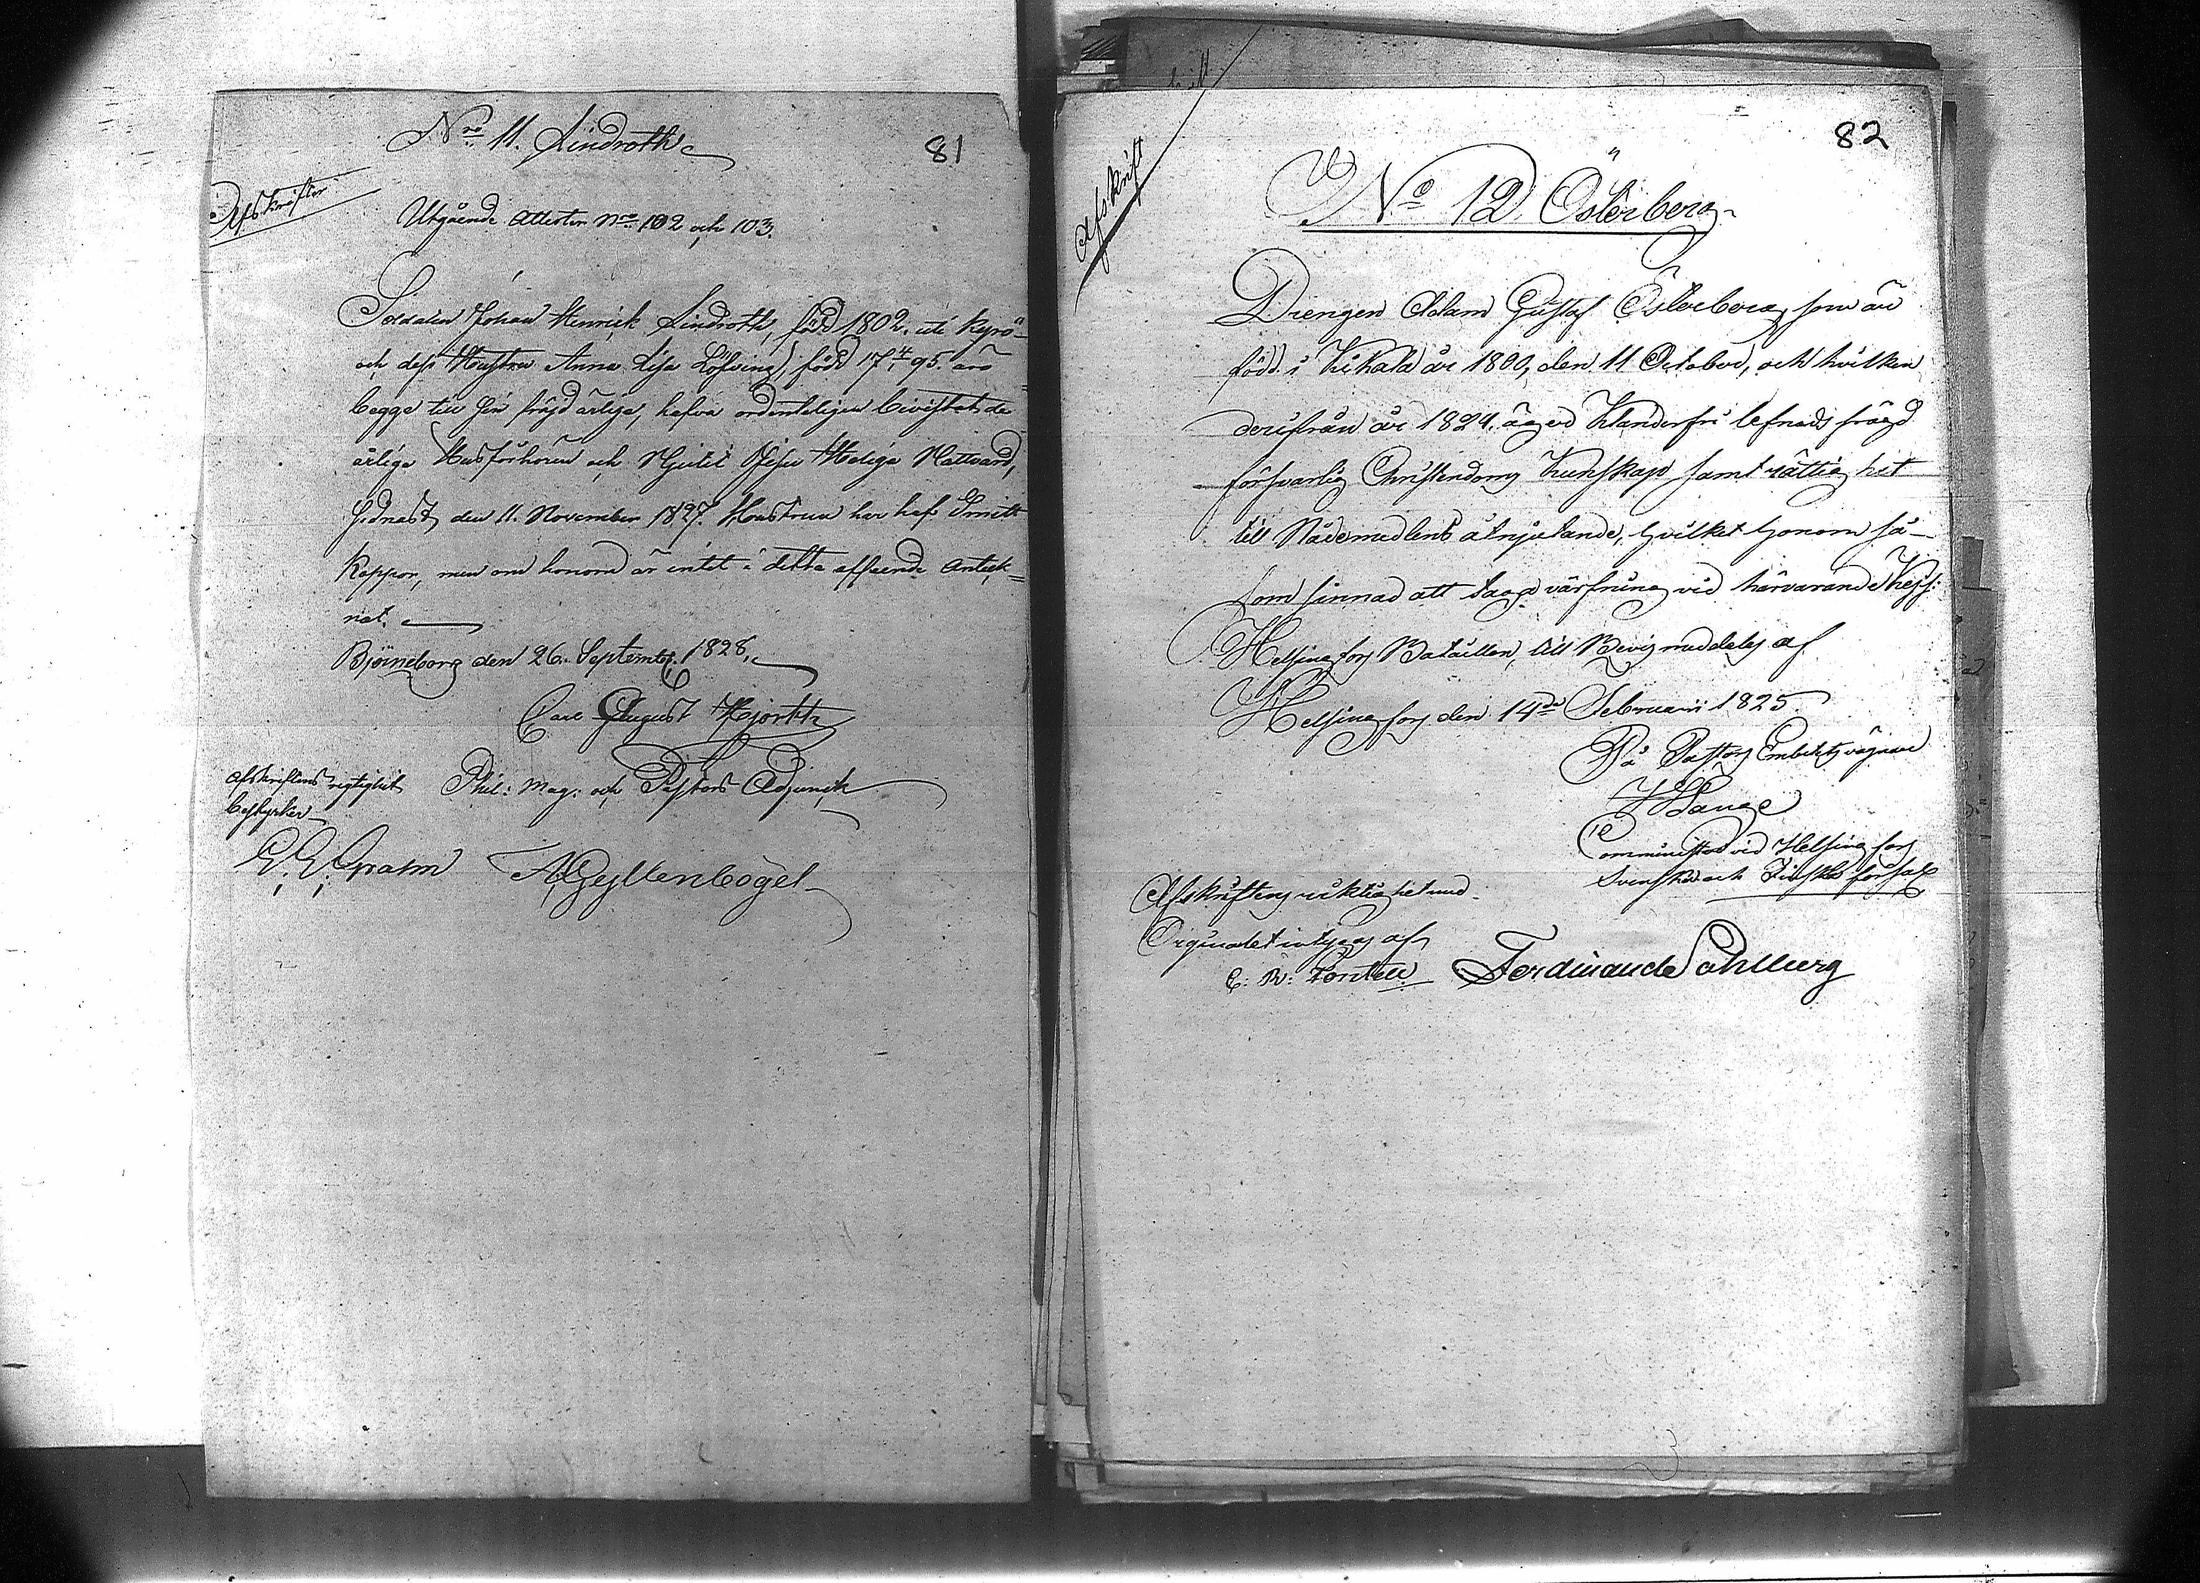 Nro 11. Lindroth
81
Afskrifter
Utgående Attester Nro 102 och 103.
Soldaten Johan Henrick Lindroth, född 1802. uti Kyro
och dess Hustru Anna Lisa Löfving, född 17 95. äro
begge till sin frägd ärlige, hafva ordenteligen bivistat de
årliga Husförhören och Njutit Jesu Heliga Nattvard,
sidnast den 11. November 1827. Hustrun har haft Smitt
Koppor, men om honom är intet i detta afseende anteck=
nat.
Björneborg den 26. Septemb. 1828.
Carl August Hjorth
Phil: Mag: och Pastors Adjunct
afskriftens rigtighet
bestyrker
E. E. Gratm A Gyllenbögel
82
Afskrift
No 12 Österberg
Drengen Adam Gustaf Österberg, som är
född i Kikala år 1800, den 11 October, och hvilken
derifrån år 1824. äger Klanderfri lefnads frägd
försvarlig Christendoms Kunskap samt rättighet
till Nådemedlens åtnjutande, hvilket honom så-
som sinnad att taga värfning vid härvarande Kejs:
Helsingfors Bataillon, till Bevis meddelas af
Helsingfors den 14de Februarii 1825.
På Pastors Embetets vägnar
Lange
Comminister vid Helsingfors
Svenska och Finska församl
Afskriftens riktighet med
Originalet intygas af
C: R: Fontell Ferdinand Sahlberg